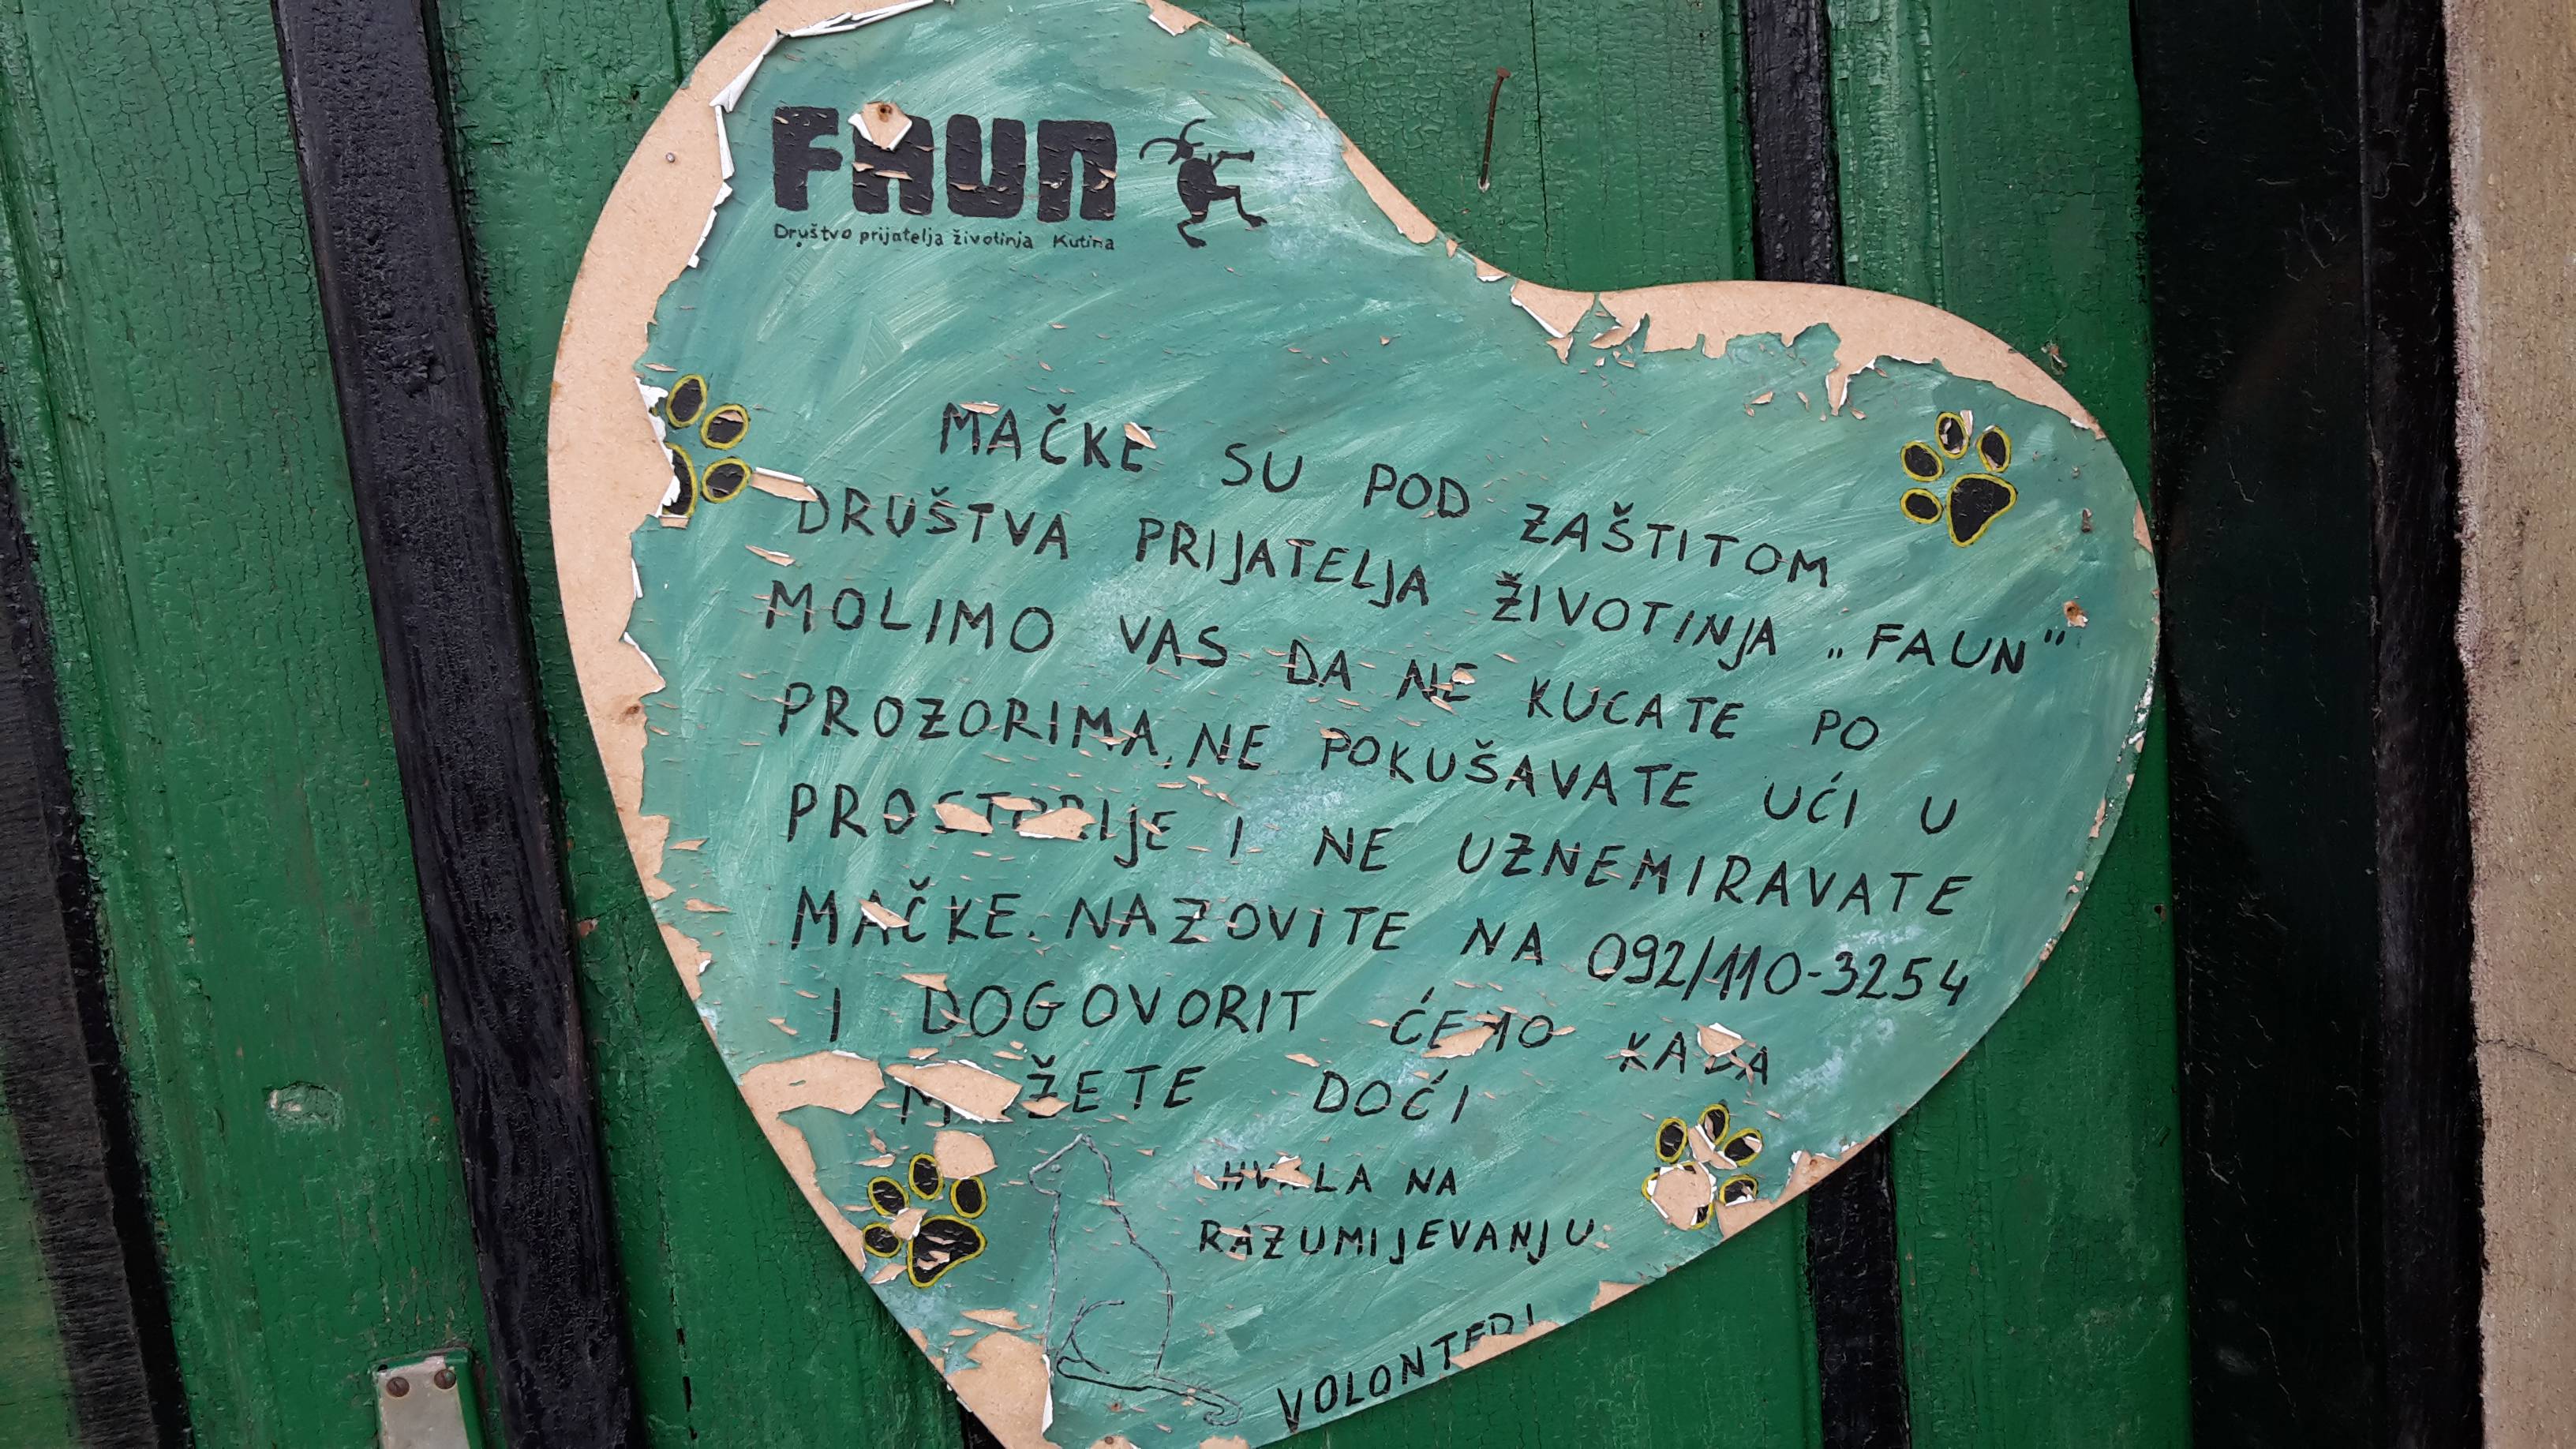 FAUN
Društvo prijatelja životinja Kutina
MAČKE SU POD ZAŠTITOM
DRUŠTVA PRIJATELJA ŽIVOTINJA „FAUN"
MOLIMO VAS DA NE KUCATE PO
PROZORIMA, NE POKUŠAVATE UĆI U
PROSTORIJE I NE UZNEMIRAVATE
MAČKE. NAZOVITE NA 092/110-3254
I DOGOVORIT ĆEMO KADA
MOŽETE DOĆI
HVALA NA
RAZUMIJEVANJU
VOLONTERI